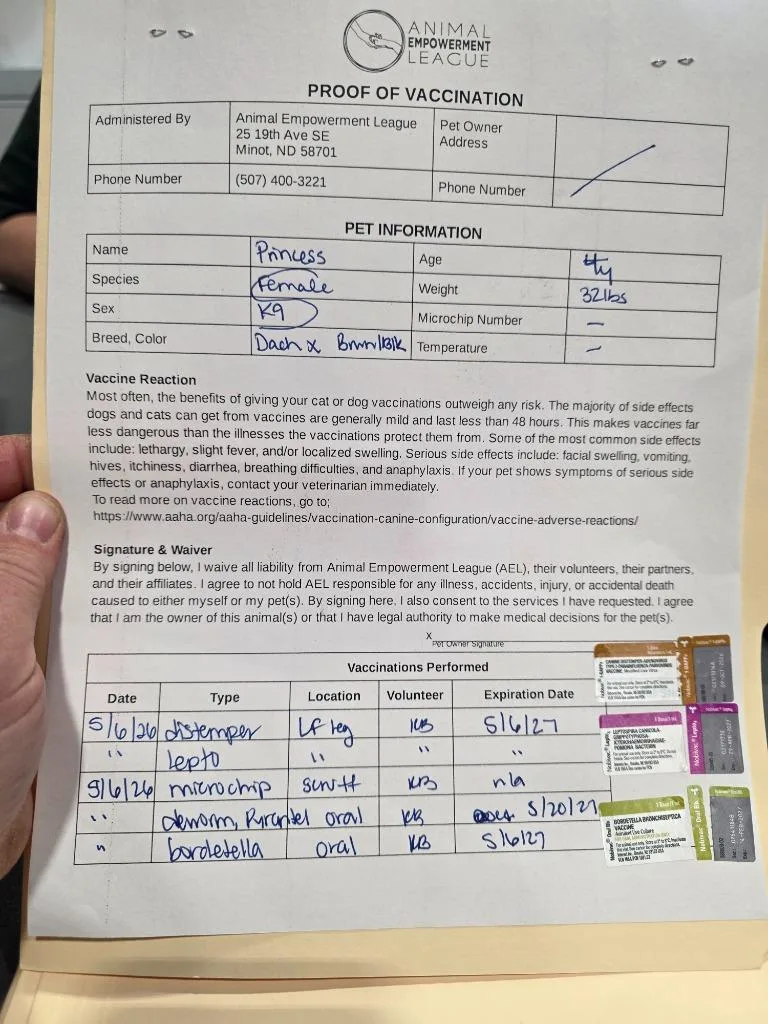 ANIMAL
EMPOWERMENT
LEAGUE
PROOF OF VACCINATION
Administered By
Animal Empowerment League
25 19th Ave SE
Minot, ND 58701
Pet Owner
Address
Phone Number
(507) 400-3221
Phone Number
PET INFORMATION
Name Princess Age 4y
Species Female Weight 32lbs
Sex K9 Microchip Number –
Breed, Color Dach x Brwn/Blk Temperature –
Vaccine Reaction
Most often, the benefits of giving your cat or dog vaccinations outweigh any risk. The majority of side effects
dogs and cats can get from vaccines are generally mild and last less than 48 hours. This makes vaccines far
less dangerous than the illnesses the vaccinations protect them from. Some of the most common side effects
include: lethargy, slight fever, and/or localized swelling. Serious side effects include: facial swelling, vomiting,
hives, itchiness, diarrhea, breathing difficulties, and anaphylaxis. If your pet shows symptoms of serious side
effects or anaphylaxis, contact your veterinarian immediately.
To read more on vaccine reactions, go to;
https://www.aaha.org/aaha-guidelines/vaccination-canine-configuration/vaccine-adverse-reactions/
Signature & Waiver
By signing below, I waive all liability from Animal Empowerment League (AEL), their volunteers, their partners,
and their affiliates. I agree to not hold AEL responsible for any illness, accidents, injury, or accidental death
caused to either myself or my pet(s). By signing here, I also consent to the services I have requested. I agree
that I am the owner of this animal(s) or that I have legal authority to make medical decisions for the pet(s).
X
Pet Owner Signature
Vaccinations Performed
Date Type Location Volunteer Expiration Date
5/6/26 distemper LF leg KB 5/6/27
" lepto " " "
5/6/26 microchip scruff KB n/a
" deworm, Pyrantel oral KB 5/20/27
" bordetella oral KB 5/6/27
CANINE DISTEMPER-ADENOVIRUS
TYPE 2-PARAINFLUENZA-PARVOVIRUS
VACCINE
LEPTOSPIRA CANICOLA-
GRIPPOTYPHOSA-
ICTEROHAEMORRHAGIAE-
POMONA BACTERIN
BORDETELLA BRONCHISEPTICA
VACCINE
Avirulent Live Culture